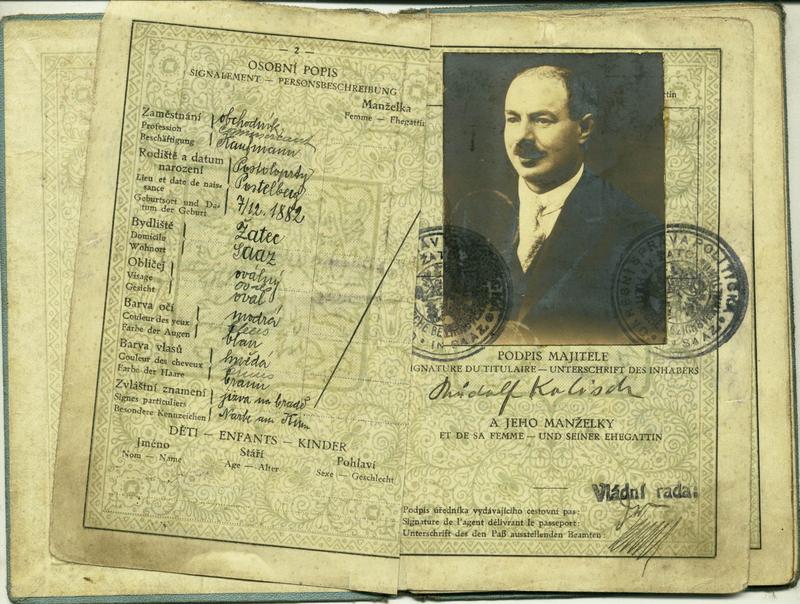 — 2 —
OSOBNÍ POPIS
SIGNALEMENT — PERSONSBESCHREIBUNG
Manželka
Femme — Ehegattin
Zaměstnání
Profession
Beschäftigung
obchodník
Commercant
Kaufmann
Rodiště a datum
narození
Lieu et date de nais-
sance
Geburtsort und Da-
tum der Geburt
Postoloprty
Postelberg
7/12. 1882
Bydliště
Domicile
Wohnort
Žatec
Saaz
Obličej
Visage
Gesicht
oválný
oval
oval
Barva očí
Couleur des yeux
Farbe der Augen
modrá
blau
Barva vlasů
Couleur des cheveux
Farbe der Haare
hnědá
braun
Zvláštní znamení
Signes particuliers
Besondere Kennzeichen
jizva na bradě
Narbe am Kinn
DĚTI — ENFANTS — KINDER
Jméno
Nom — Name
Stáří
Age — Alter
Pohlaví
Sexe — Geschlecht
PODPIS MAJITELE
SIGNATURE DU TITULAIRE — UNTERSCHRIFT DES INHABERS
Rudolf Kolisch
A JEHO MANŽELKY
ET DE SA FEMME — UND SEINER EHEGATTIN
Vládní rada:
Podpis úředníka vydávajícího cestovní pas:
Signature de l'agent délivrant le passeport:
Unterschrift des den Paß ausstellenden Beamten:
SPRÁVA POLITICKÁ
IN SAAZ